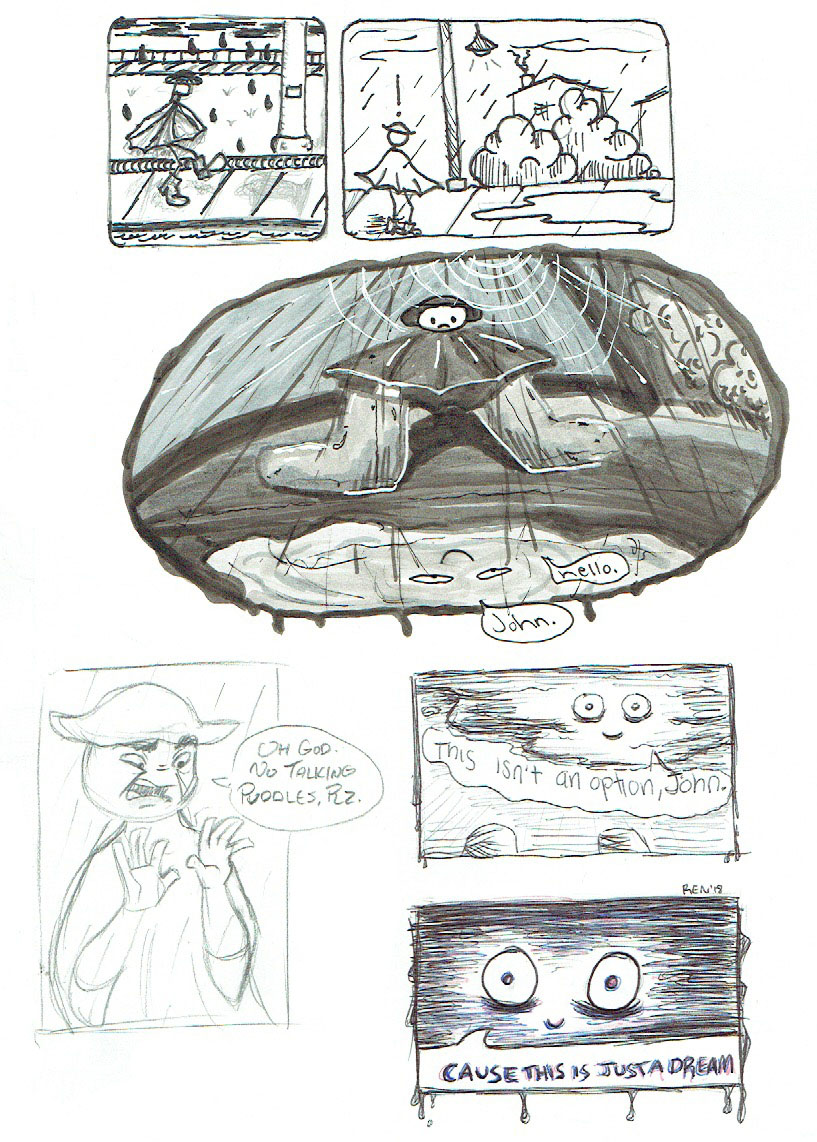 !
hello.
John.
OH GOD.
NO TALKING
PUDDLES, PLZ.
This isn't an option, John.
REN '18
CAUSE THIS IS JUST A DREAM